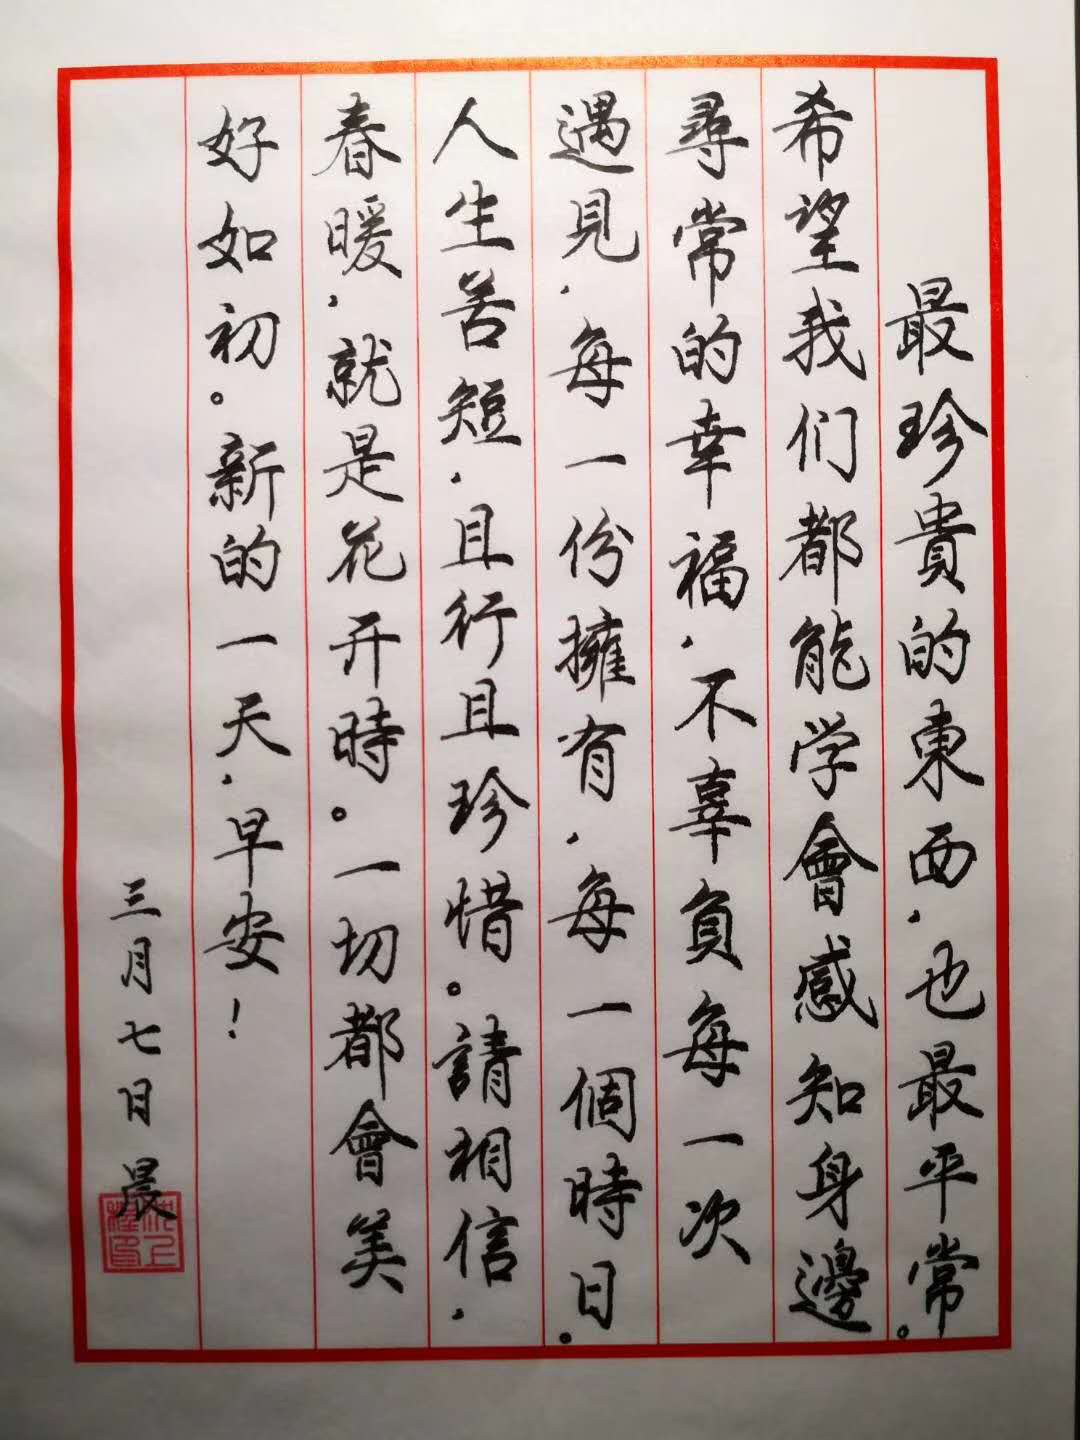 最珍貴的東西，也最平常。
希望我们都能学會感知身邊
尋常的幸福，不辜負每一次
遇見，每一份擁有，每一個時日。
人生苦短，且行且珍惜。請相信，
春暖，就是花开時。一切都會美
好如初。新的一天，早安！
三月七日晨